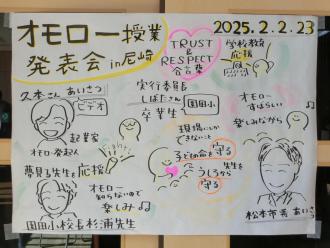 オモロー授業
発表会 in 尼崎
2025.2.2.23
TRUST
&
RESPECT
合言葉
学校教育
応援
久本さん あいさつ
ビデオ
起業家
オモロー発起人
実行委員長
しばたさん
園田小
卒業生
オモロー
すばらしい
楽しみながら
現場にしか
できないこと
子どもの命を守る
先生を
うしろから
守る
夢見る先生を応援
オモロー
知らないので
楽しみ
園田小校長杉浦先生
松本市長 あいさつ